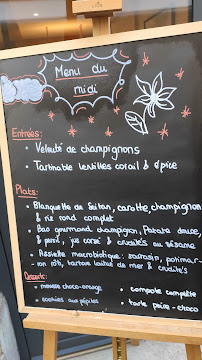 Menu du
midi
Entrées:
• Velouté de champignons
• Tartinable lentilles corail & épice
Plats:
• Blanquette de Seitan, carotte, champignon
& riz rond complet
• Bao gourmand champignon, Patate douce,
& panais, jus corsé & crudités au sésame
• Assiette macrobiotique: sarrasin, potimar-
-ron rôti, tartare laitue de mer & crudités
Desserts:
• mousse choco-orange
• compote complète
• cookies aux pépites
• tarte poire-choco